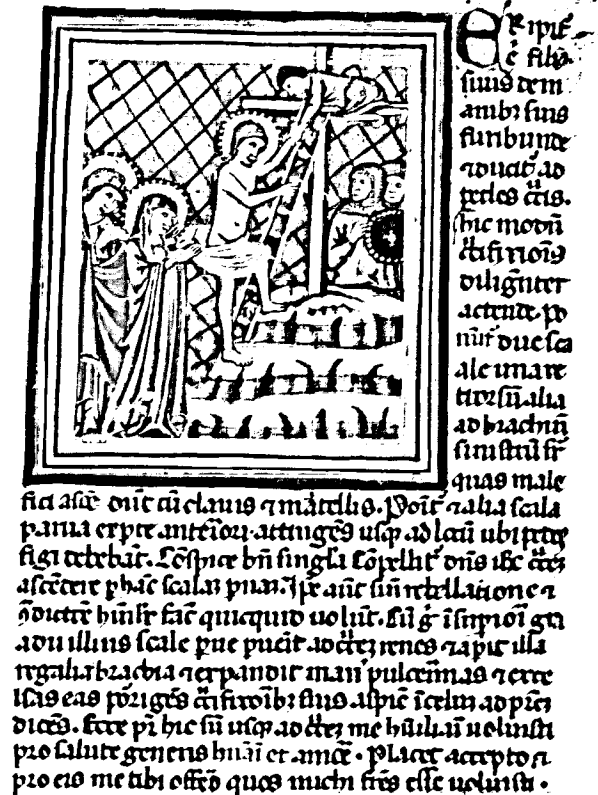 Eripit᷒
ē filiꝰ
suus de m
anibꝫ suis
furibunde
⁊ ducit᷒ ad
pedes cͣcis.
hic modū
cͣcifixiōis
diligēter
attende. po
nūt᷒ due sca
le una re
trorsū alia
ad brachiū
sinistrū sr̄
quas male
fici ascē dūt cū clavis ⁊ martellis. Poīt᷒ ⁊ alia scala
parua ex pte anteriori. attingēs usqꝫ ad locū ubi pedes
figi debebāt. Cōspice bn̄ singula Cōpellit᷒ dn̄s ihc cͣcez
ascendere ꝑ hāc scalaꝫ paruā. Ipe aūt sin̄ rebellatione ⁊
ꝯdictōe huīlr̄ fac̄ quicquid uolūt. Cū ġ ī supiori gͣ
adu illius scale pue puēit ad cͣcez renes ⁊ apit illa
regalia brachia ⁊ expandit manꝰ pulcerīmas ⁊ exce
lsas eas porigēs cͣcifixoribꝫ suis aspiē ī celū ad prēz
dicēs. Ecce pr̄ hic sū usqꝫ ad cͣcez me huīliari uoluisti
pro salute generis huāi et. Placet accepto
pro eis me tibi offero quos michi frēs esse uoluisti.